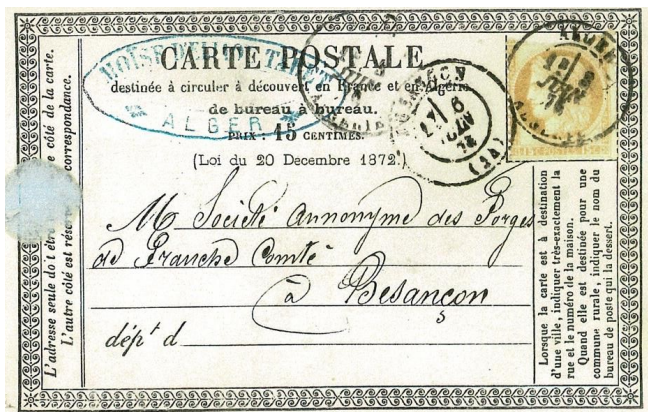 CARTE POSTALE
destinée à circuler à découvert en France et en Algérie
de bureau à bureau.
PRIX : 15 CENTIMES.
(Loi du 20 Decembre 1872.)
ALGER
BESANCON
ALGER
ALGERIE
M Société Annonyme des Forges
de Franche Comté
à Besançon
dépt d
L'adresse seule doit être côté de la carte.
L'autre côté est réservé correspondance.
Lorsque la carte est à destination
d'une ville, indiquer très-exactement la
rue et le numéro de la maison.
Quand elle est destinée pour une
commune rurale, indiquer le nom du
bureau de poste qui la dessert.